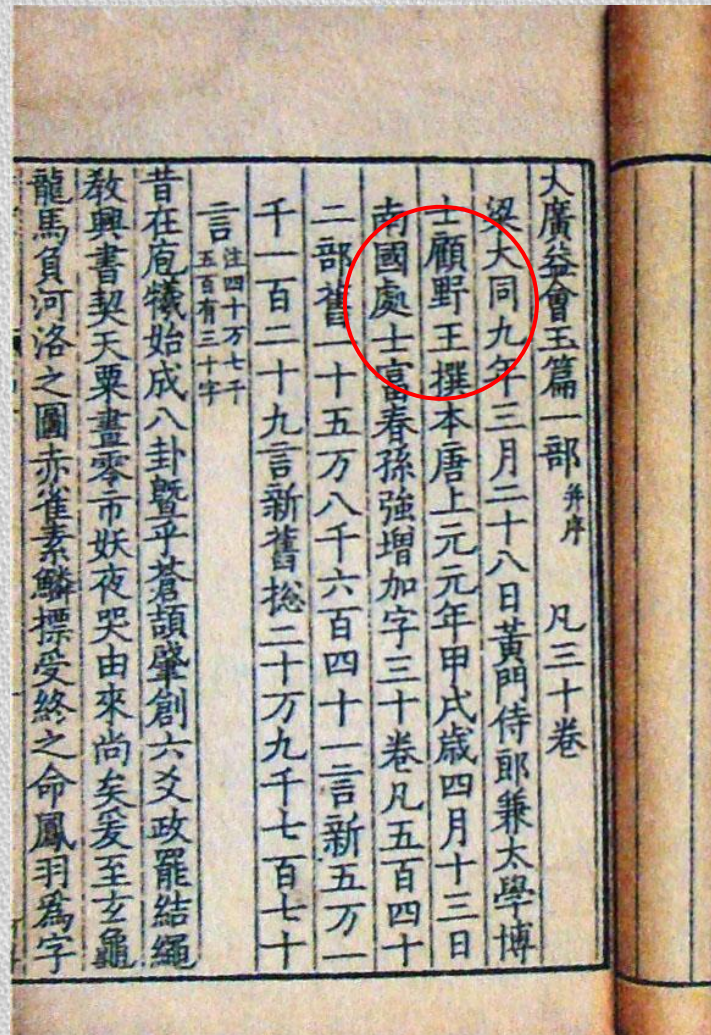 大廣益會玉篇一部 并序 凡三十卷
梁大同九年三月二十八日黃門侍郎兼太學博
士顧野王撰本唐上元元年甲戌歲四月十三日
南國處士富春孫強增加字三十卷凡五百四十
二部舊一十五万八千六百四十一言新五万一
千一百二十九言新舊揔二十万九千七百七十
言 注四十万七千
五百有三十字
昔在庖犧始成八卦曁乎蒼頡肇創六爻政罷結繩
敎興書契天粟晝零市妖夜哭由來尚矣爰至玄龜
龍馬負河洛之圖赤雀素鱗摽受終之命鳳羽爲字